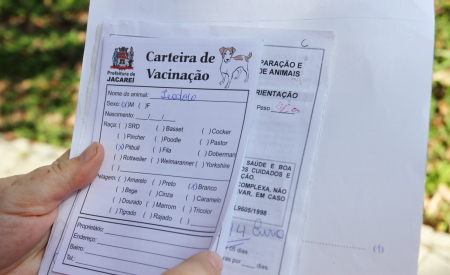 Carteira de
Vacinação
Prefeitura de
JACAREÍ
Nome do animal:
Sexo: (x) M ( ) F
Nascimento: __/__/__
Raça: ( ) SRD ( ) Basset ( ) Cocker
( ) Pincher ( ) Poodle ( ) Pastor
(x) Pitbull ( ) Fila ( ) Doberman
( ) Rottweiler ( ) Weimaranner ( ) Yorkshire
Pelagem: ( ) Amarelo ( ) Preto (x) Branco
( ) Bege ( ) Cinza ( ) Caramelo
( ) Dourado ( ) Marrom ( ) Tricolor
( ) Tigrado ( ) Rajado ( )
Proprietário:
Endereço:
Bairro:
C
PARAÇÃO E
DE ANIMAIS
ORIENTAÇÃO
Peso
SAÚDE E BOA
OS CUIDADOS E
AÇÃO.
COMPLEXA, NÃO
VAR, EM CASO
9605/1998
dias
por dias.